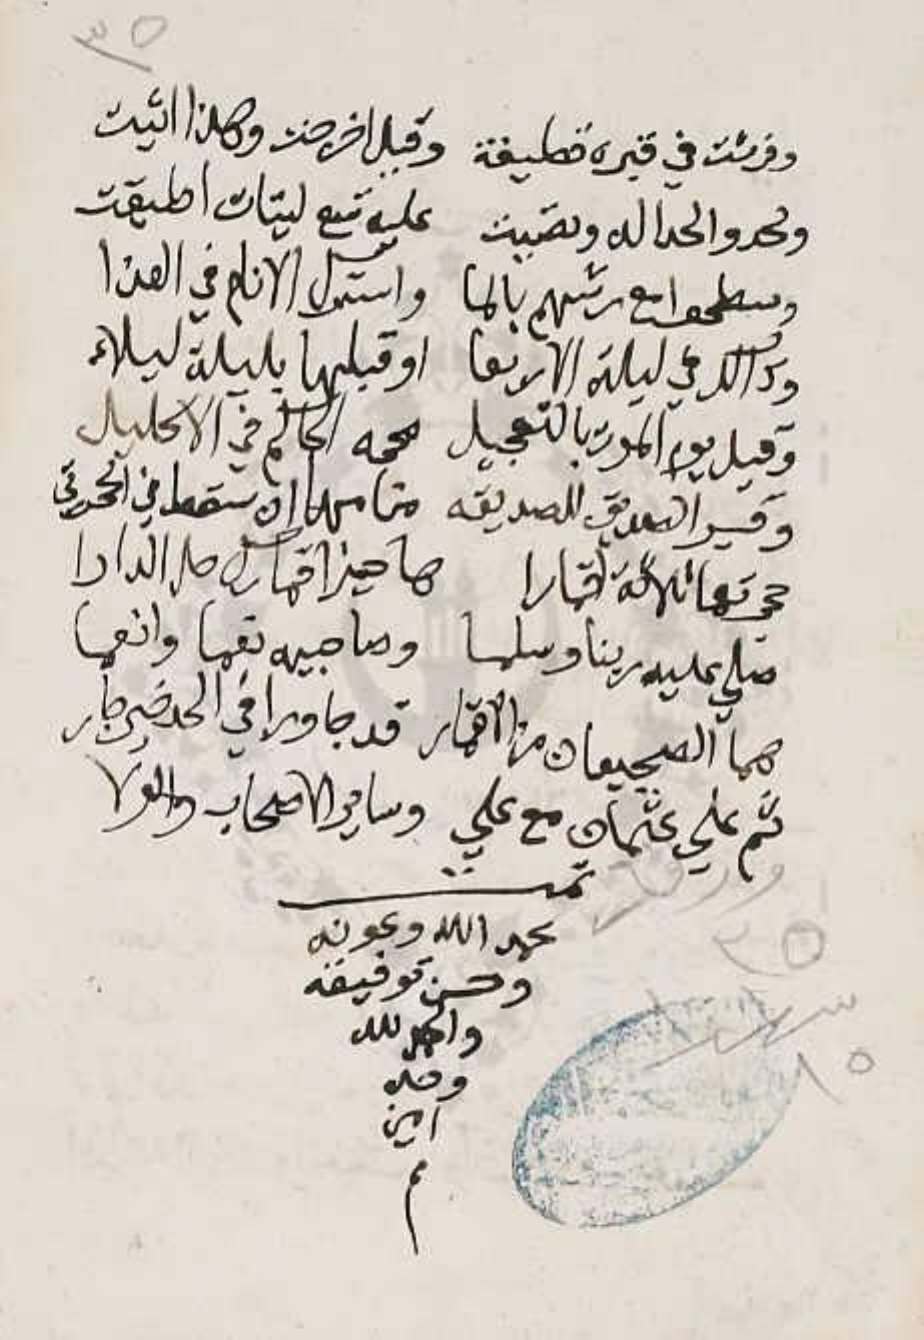 ٣٥
وفرشت في قبره قطيفة وقيل اخرجت وهذا اثبت
ولحدوا لحدا له ونصبت عليه تسع لبنات اطبقت
وسطحوا مع رشهم بالما واشترك الانام في العزا
وذالك في ليلة الاربعا او قبلها بليلة ليلاء
وقيل يوم الموت بالتعجيل صححه الحاكم في الاكليل
وفسر الصديق للصديقه منامها ان سقط في الحجرتي
حجرتها ثلاثة اقمارا ها خير اقمارك حل الدارا
صلي عليه ربنا وسلما وصاحبيه نعما وانعما
هما الضجيعان من الاقمار قد جاورا في اللحد خير جار
ثم علي عثمان مع علي وساير الاصحاب والولا
تمت
بحمد الله وعونه
وحسن توفيقه
والحمد لله
وحده
امين
م
٣٥